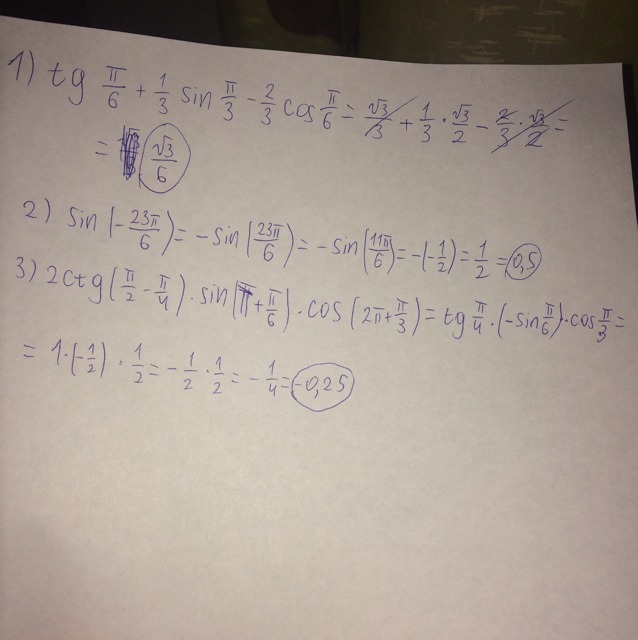 1) tg π/6 + 1/3 sin π/3 - 2/3 cos π/6 = √3/3 + 1/3 · √3/2 - 2/3 · √3/2 =
= √3/6
2) sin(-23π/6) = -sin(23π/6) = -sin(11π/6) = -(-1/2) = 1/2 = 0,5
3) 2ctg(π/2 - π/4) · sin(π + π/6) · cos(2π + π/3) = tg π/4 · (-sin π/6) · cos π/3 =
= 1 · (-1/2) · 1/2 = -1/2 · 1/2 = -1/4 = -0,25